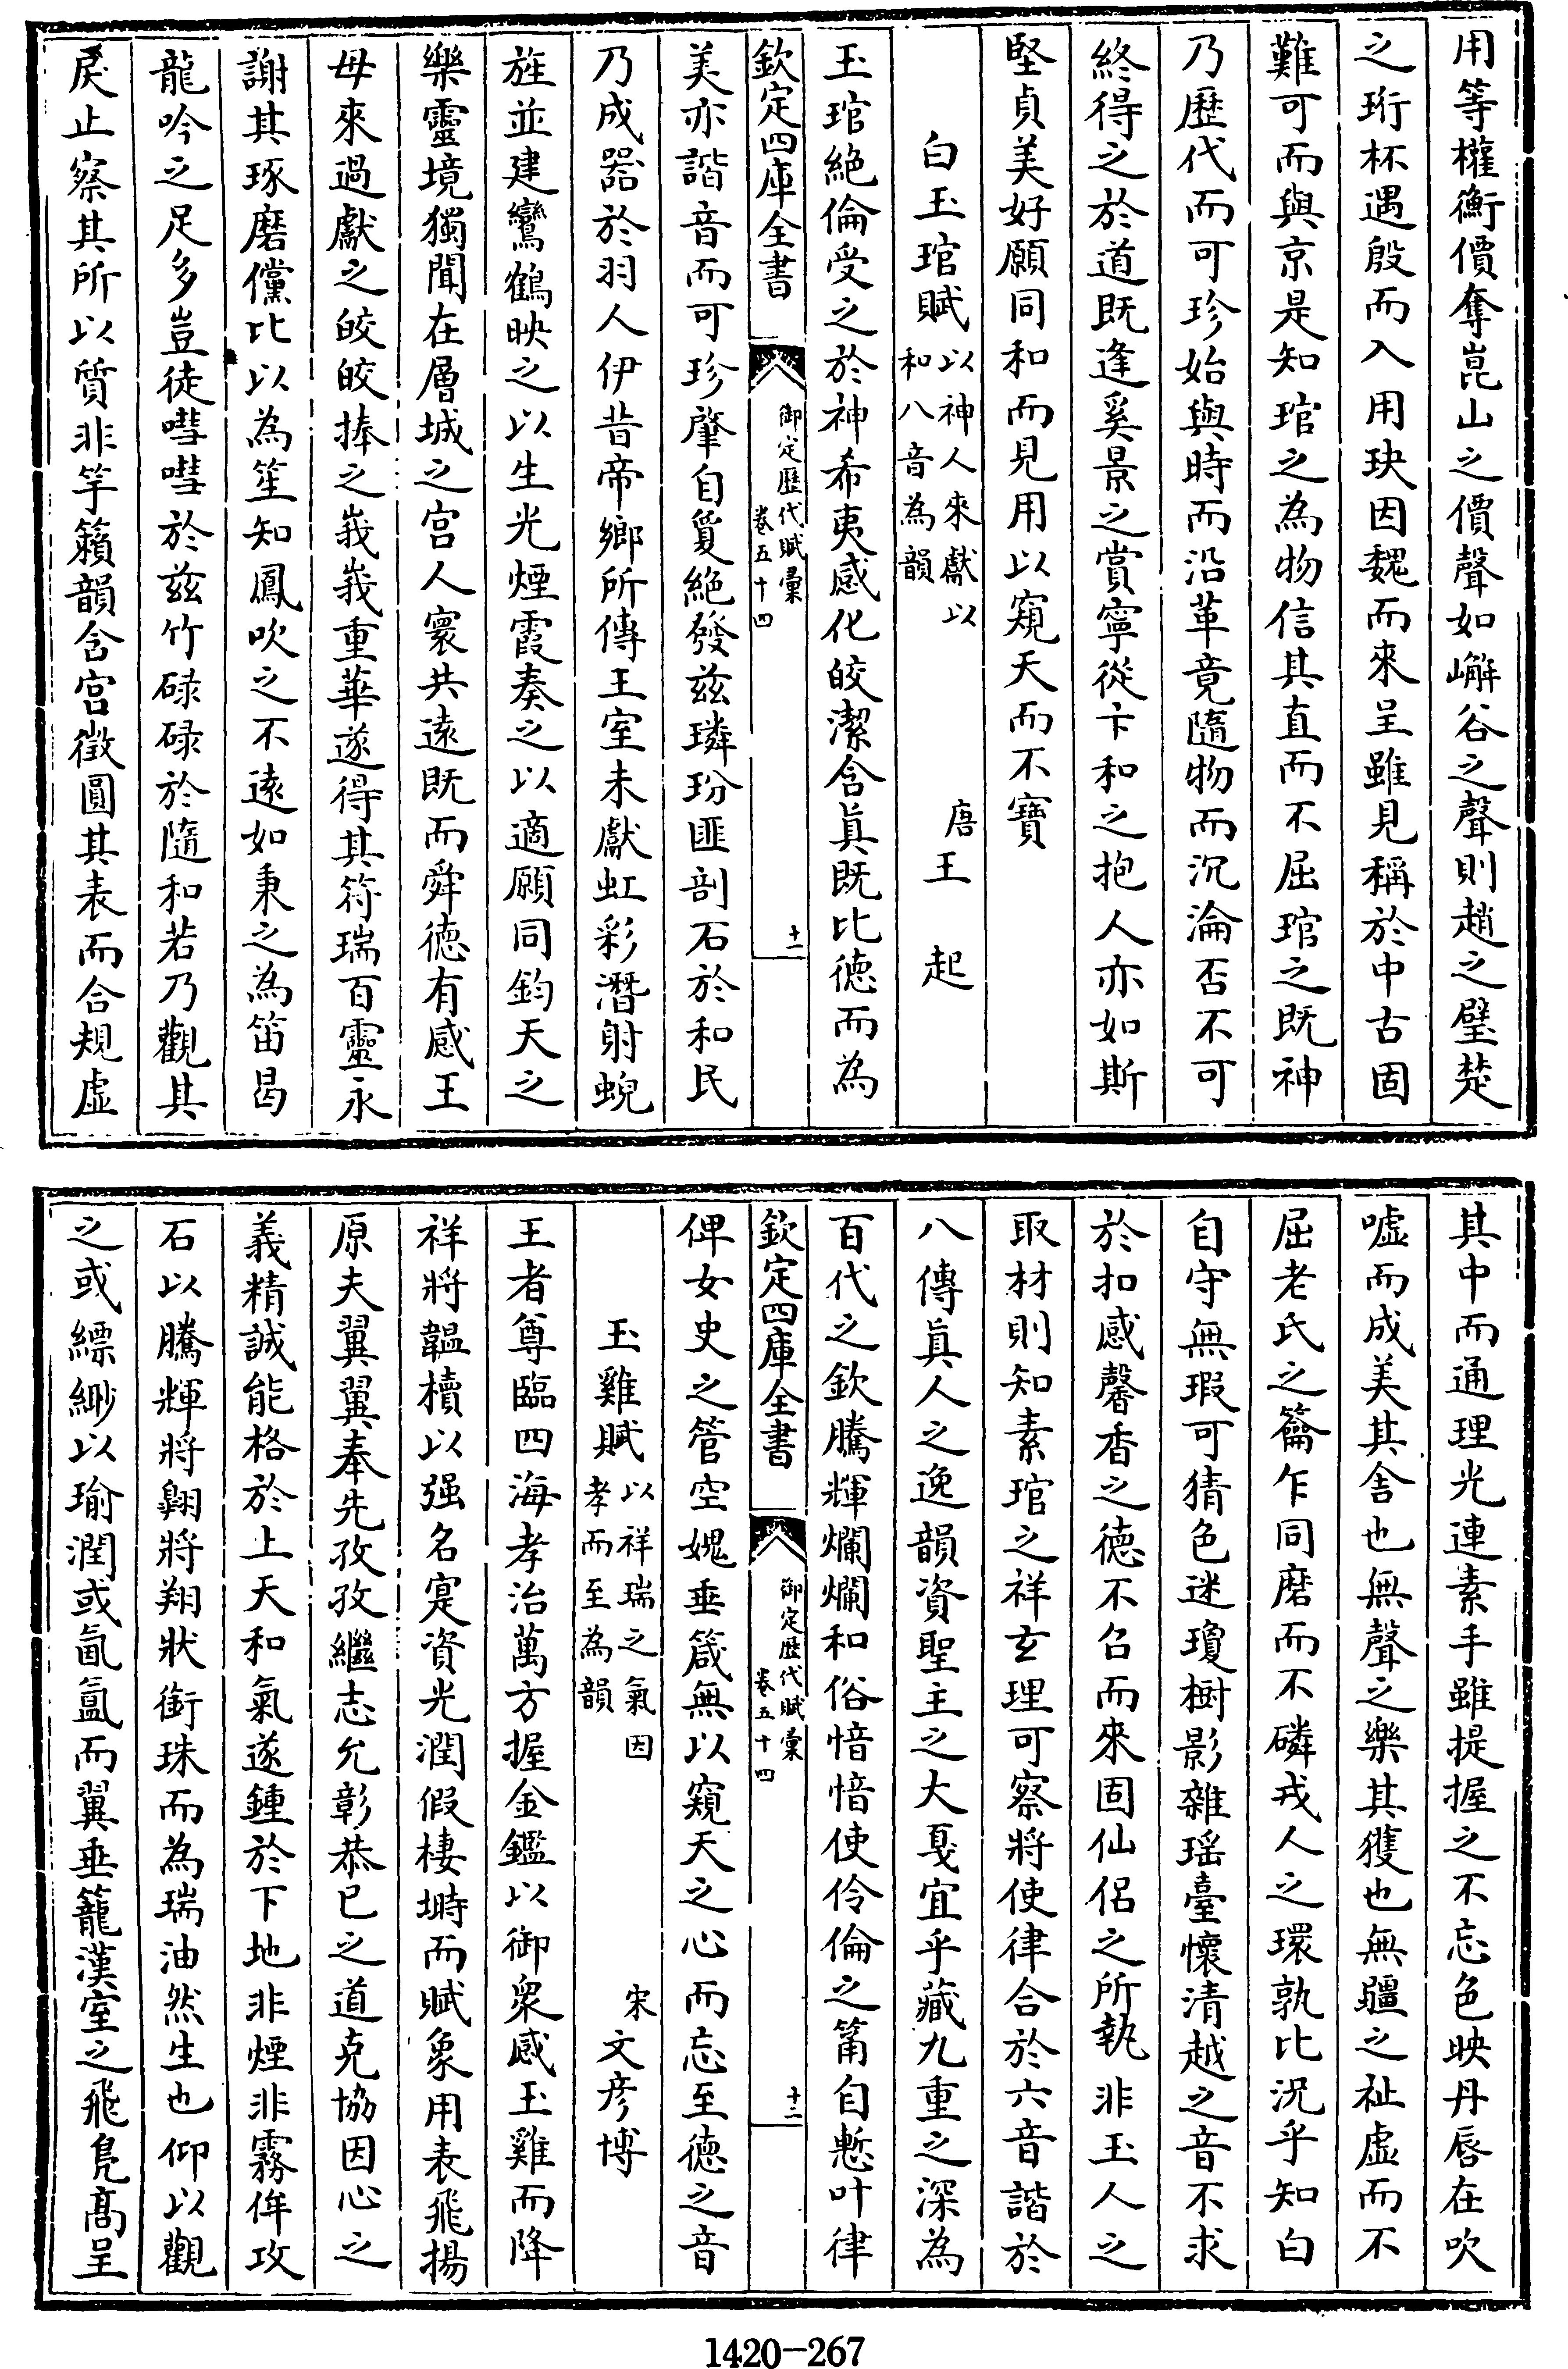 用等權衡價奪崑山之價聲如嶰谷之聲則趙之璧楚
之珩杯遇殷而入用玦因魏而來呈雖見稱於中古固
難可而與京是知琯之為物信其直而不屈琯之既神
乃歷代而可珍始與時而沿革竟隨物而沉淪否不可
終得之於道既逢奚景之賞寧從卞和之抱人亦如斯
堅貞美好願同和而見用以窺天而不寶
白玉琯賦以神人來獻以和八音為韻 唐王起
玉琯絶倫受之於神希夷感化皎潔含眞既比德而為
欽定四庫全書 御定歷代賦彚卷五十四 十一
美亦諧音而可珍肇自夐絶發兹璘玢匪剖石於和民
乃成器於羽人伊昔帝鄉所傳王室未獻虹彩潛射蜺
旌並建鸞鶴映之以生光煙霞奏之以適願同鈞天之
樂靈境獨聞在層城之宫人寰共遠既而舜德有感王
母來過獻之皎皎捧之峩峩重華遂得其符瑞百靈永
謝其琢磨儻比以為笙知鳳吹之不遠如秉之為笛曷
龍吟之足多豈徒嘒嘒於兹竹碌碌於隨和若乃觀其
戾止察其所以質非竽籟韻含宫徵圓其表而合規虛
其中而通理光連素手雖提握之不忘色映丹唇在吹
噓而成美其舍也無聲之樂其獲也無疆之祉虛而不
屈老氏之籥乍同磨而不磷戎人之環孰比況乎知白
自守無瑕可猜色迷瓊樹影雜瑶臺懷清越之音不求
於扣感馨香之德不召而來固仙侣之所執非玉人之
取材則知素琯之祥玄理可察將使律合於六音諧於
八傳眞人之逸韻資聖主之大戛宜乎藏九重之深為
百代之欽騰輝爛爛和俗愔愔使伶倫之筩自慙叶律
欽定四庫全書 御定歷代賦彚卷五十四 十二
俾女史之管空媿垂箴無以窺天之心而忘至德之音
玉雞賦以祥瑞之氣因孝而至為韻 宋文彦博
王者尊臨四海孝治萬方握金鑑以御衆感玉雞而降
祥將韞櫝以强名寔資光潤假棲塒而賦象用表飛揚
原夫翼翼奉先孜孜繼志允彰恭已之道克協因心之
義精誠能格於上天和氣遂鍾於下地非煙非霧侔攻
石以騰輝將翺將翔狀銜珠而為瑞油然生也仰以觀
之或縹緲以瑜潤或氤氲而翼垂籠漢室之飛鳬高呈
1420-267